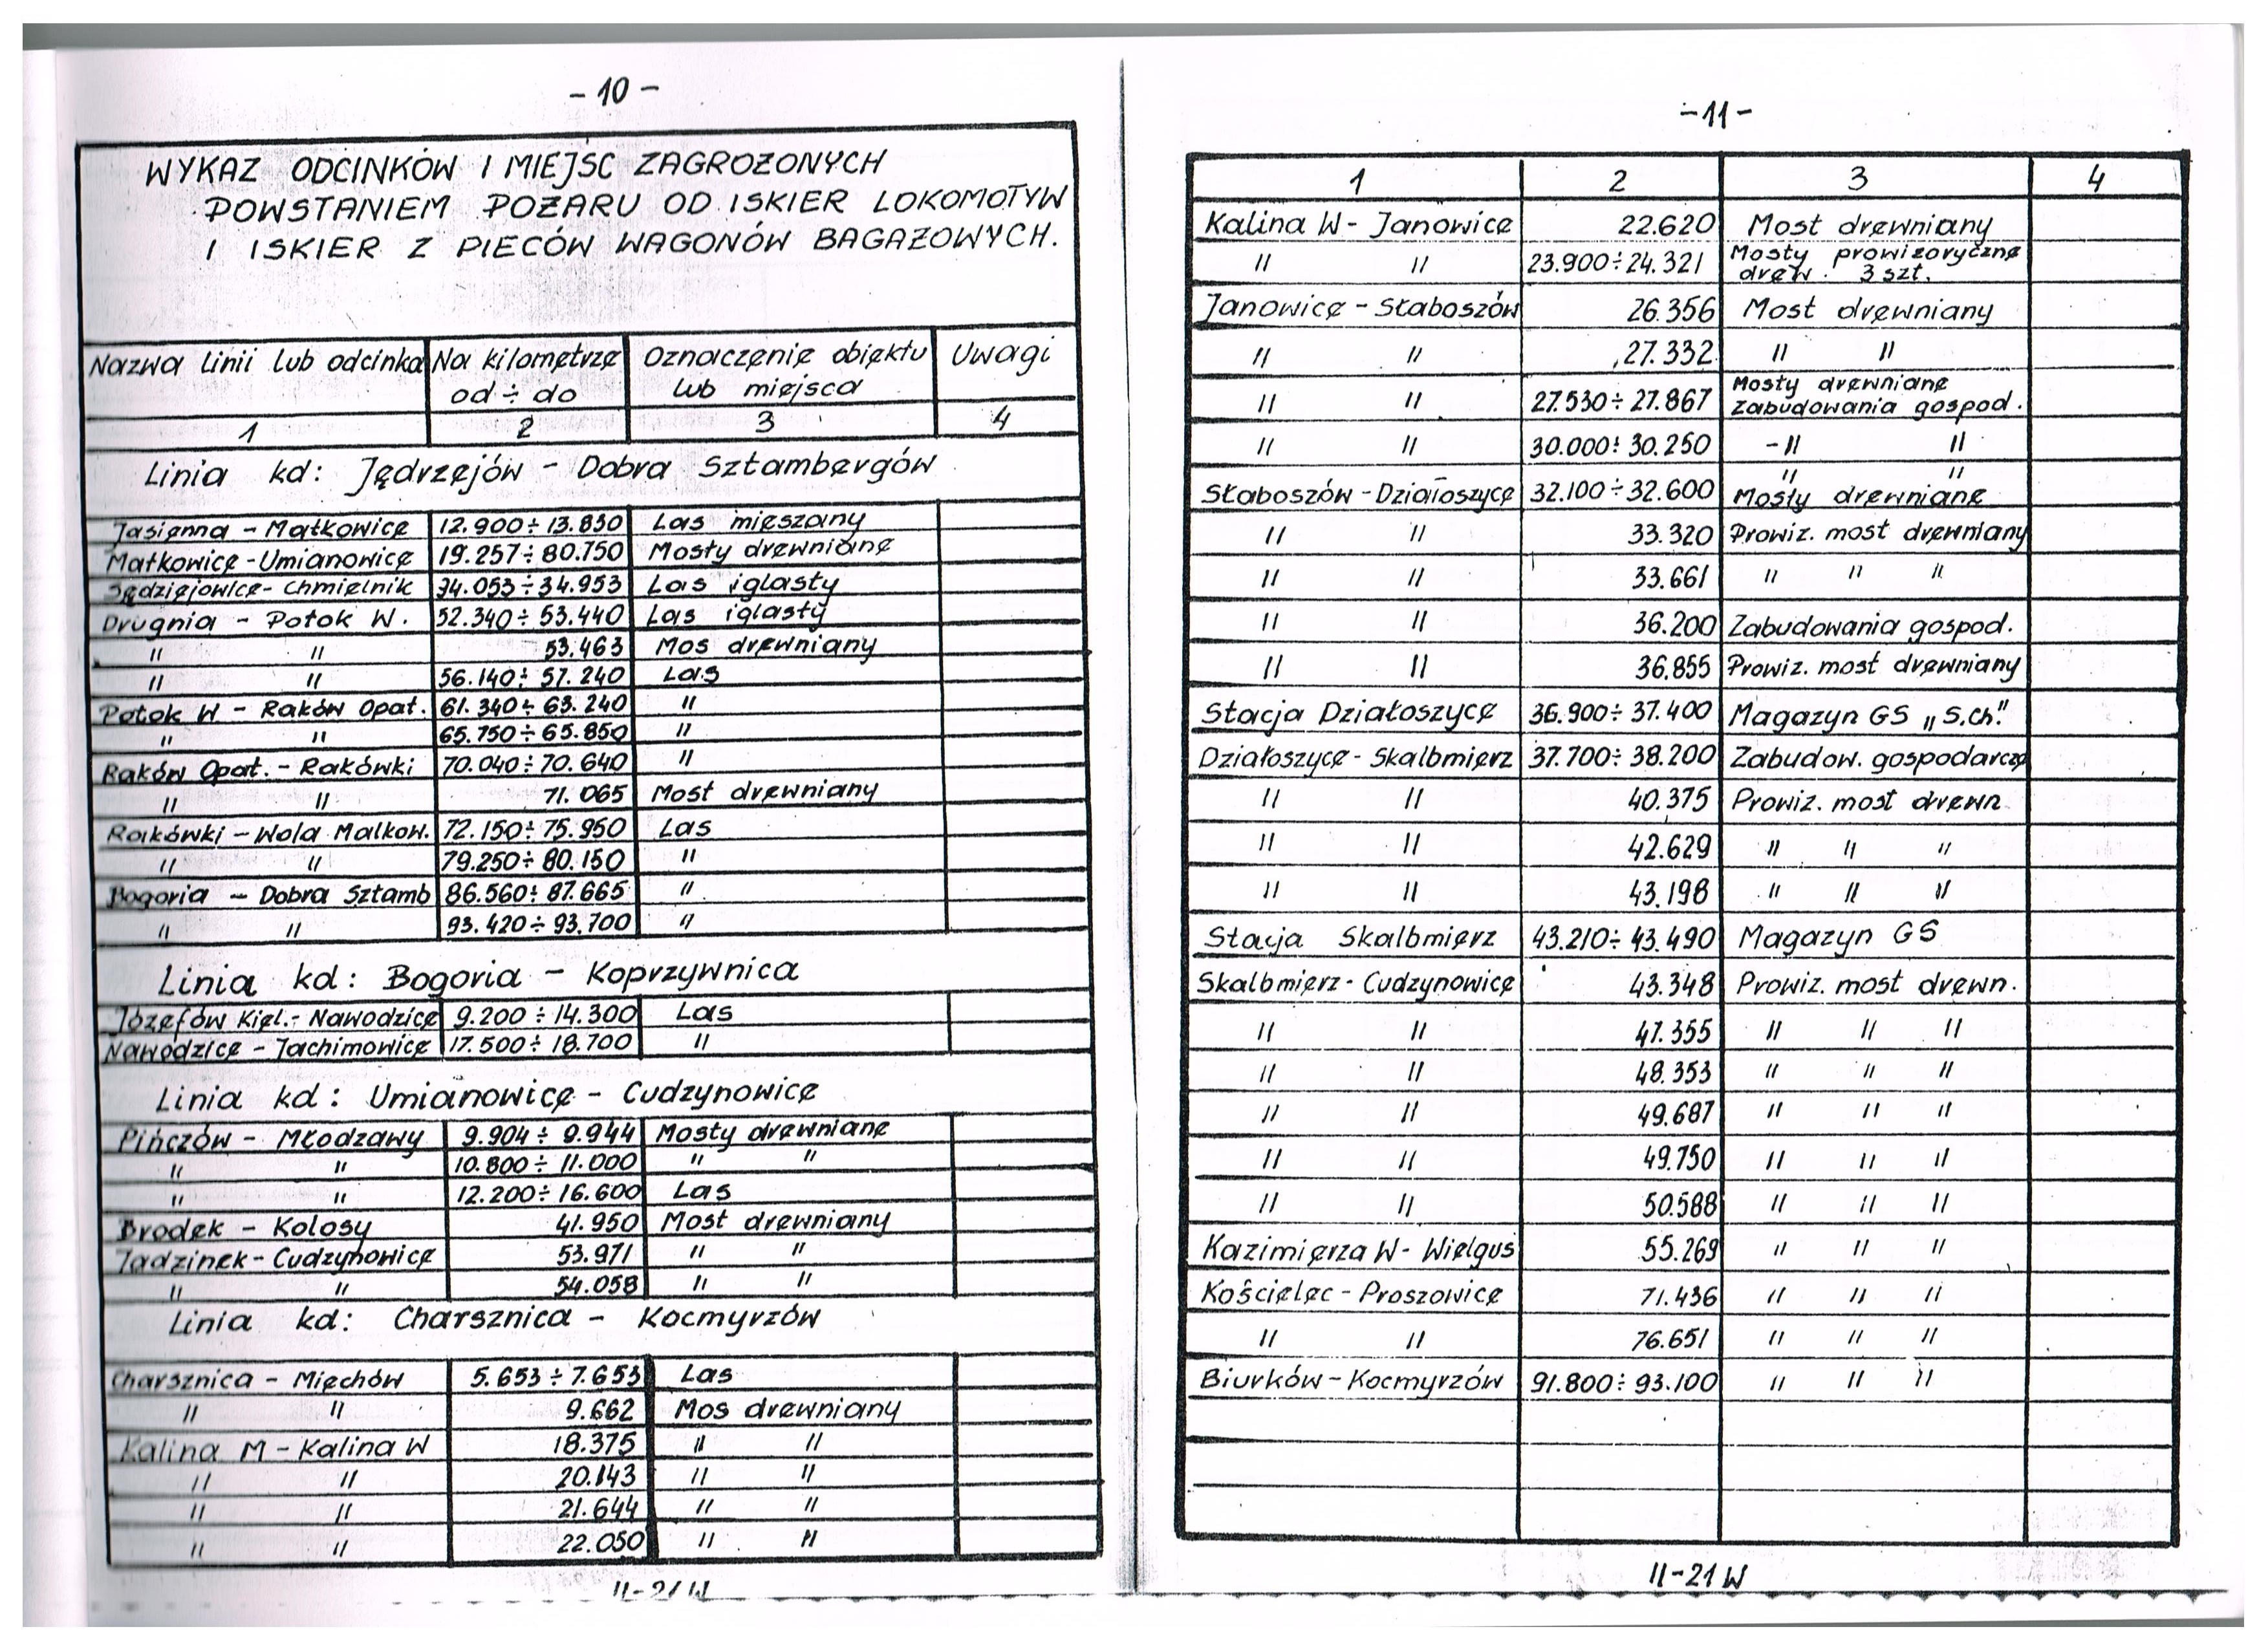 - 10 -
WYKAZ ODCINKÓW I MIEJSC ZAGROŻONYCH
POWSTANIEM POŻARU OD ISKIER LOKOMOTYW
I ISKIER Z PIECÓW WAGONÓW BAGAŻOWYCH.
Nazwa linii lub odcinka Na kilometrze od ÷ do Oznaczenie obiektu lub miejsca Uwagi
1 2 3 4
Linia kd: Jędrzejów - Dobra Sztambergów
Jasienna - Małkowice 12.900÷13.830 Las mieszany
Małkowice - Umianowice 19.257÷80.750 Mosty drewniane
Sędziejowice - Chmielnik 34.053÷34.953 Las iglasty
Drugnia - Potok W. 52.340÷53.440 Las iglasty
" " 53.463 Mos drewniany
" " 56.140÷57.240 Las
Potok W - Raków Opat. 61.340÷63.240 "
" " 65.750÷65.850 "
Raków Opat. - Rakówki 70.040÷70.640 "
" " 71.065 Most drewniany
Rakówki - Wola Malkow. 72.150÷75.950 Las
" " 79.250÷80.150 "
Bogoria - Dobra Sztamb 86.560÷87.665 "
" " 93.420÷93.700 "
Linia kd: Bogoria - Koprzywnica
Józefów Kiel. - Nawodzice 9.200÷14.300 Las
Nawodzice - Jachimowice 17.500÷18.700 "
Linia kd: Umianowice - Cudzynowice
Pińczów - Młodzawy 9.904÷9.944 Mosty drewniane
" " 10.800÷11.000 " "
" " 12.200÷16.600 Las
Brodek - Kolosy 41.950 Most drewniany
Jadzinek - Cudzynowice 53.971 " "
" " 54.058 " "
Linia kd: Charsznica - Kocmyrzów
Charsznica - Miechów 5.653÷7.653 Las
" " 9.662 Mos drewniany
Kalina M - Kalina W 18.375 " "
" " 20.143 " "
" " 21.644 " "
" " 22.050 " "
II-21W
- 11 -
1 2 3 4
Kalina W - Janowice 22.620 Most drewniany
" " 23.900÷24.321 Mosty prowizoryczne drew. 3 szt.
Janowice - Słaboszów 26.356 Most drewniany
" " 27.332 " "
" " 27.530÷27.867 Mosty drewniane Zabudowania gospod.
" " 30.000÷30.250 -" "
" "
Słaboszów - Działoszyce 32.100÷32.600 Mosty drewniane
" " 33.320 Prowiz. most drewniany
" " 33.661 " " "
" " 36.200 Zabudowania gospod.
" " 36.855 Prowiz. most drewniany
Stacja Działoszyce 36.900÷37.400 Magazyn GS „S.Ch."
Działoszyce - Skalbmierz 37.700÷38.200 Zabudow. gospodarcze
" " 40.375 Prowiz. most drewn.
" " 42.629 " " "
" " 43.198 " " "
Stacja Skalbmierz 43.210÷43.490 Magazyn GS
Skalbmierz - Cudzynowice 43.348 Prowiz. most drewn.
" " 47.355 " " "
" " 48.353 " " "
" " 49.687 " " "
" " 49.750 " " "
" " 50.588 " " "
Kazimierza W - Wielgus 55.269 " " "
Kościelec - Proszowice 71.436 " " "
" " 76.651 " " "
Biurków - Kocmyrzów 91.800÷93.100 " " "
II-21W